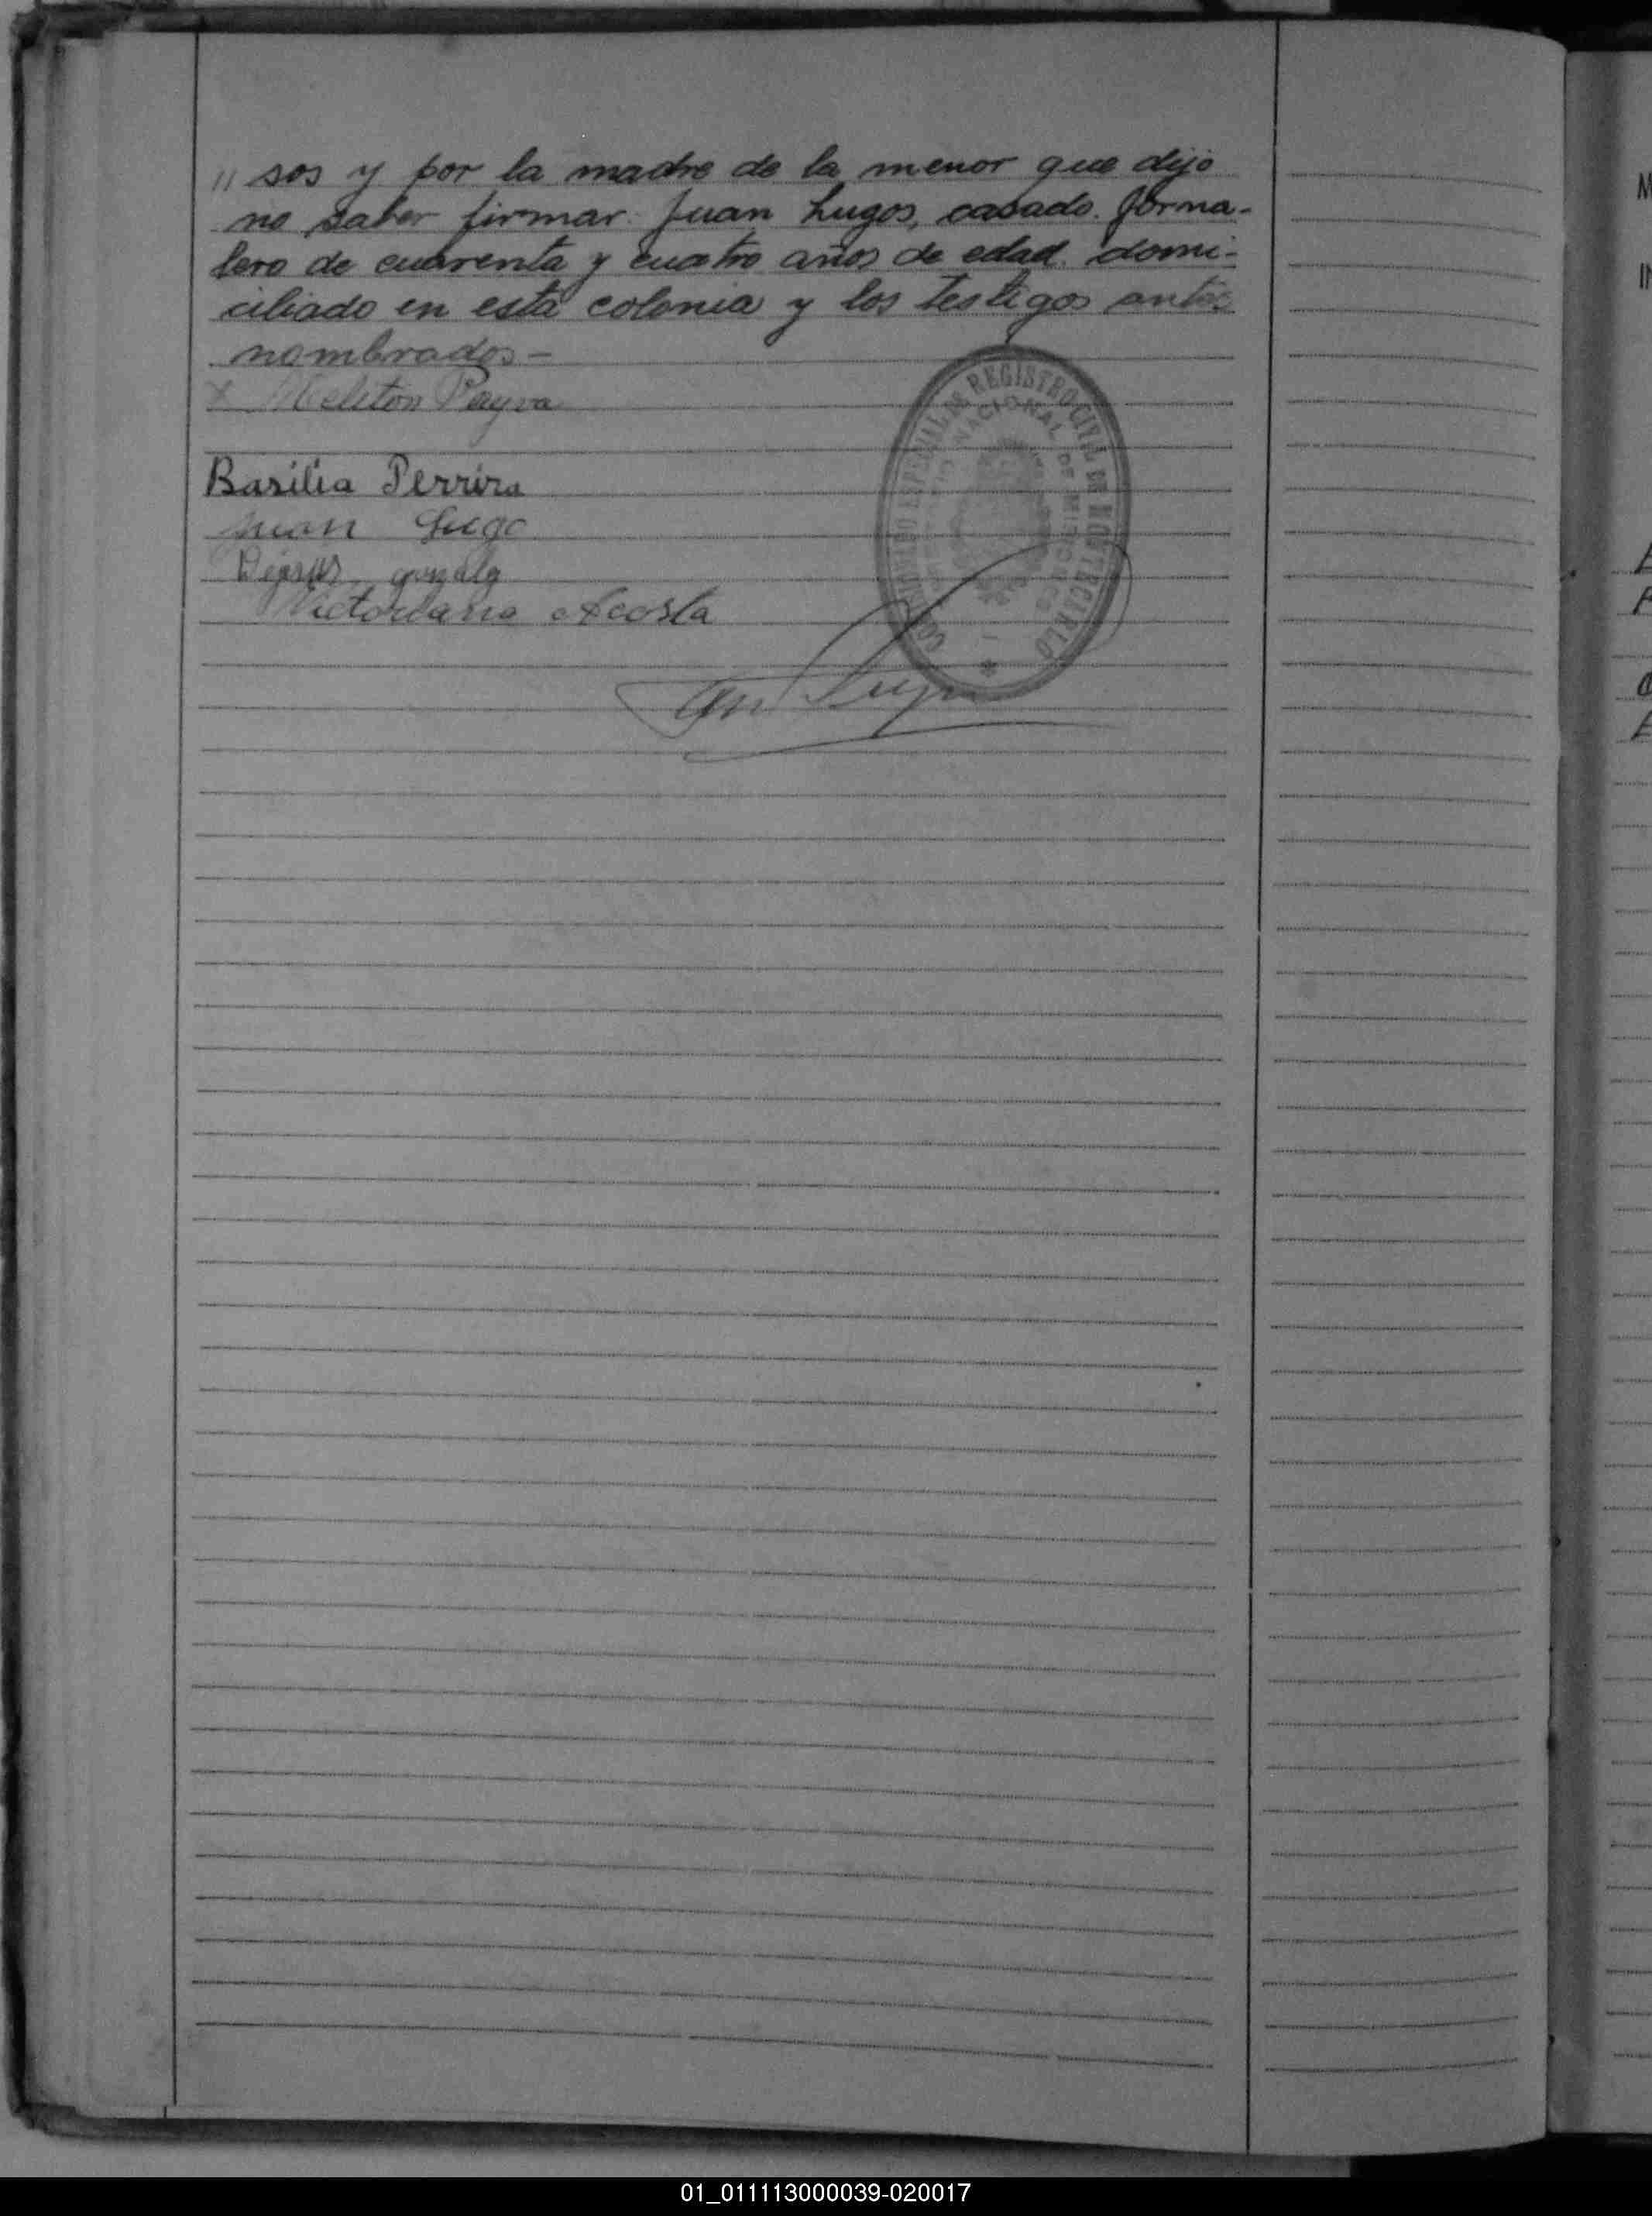 " sos y por la madre de la menor que dijo
no saber firmar: Juan Lugos, casado. Jorna-
lero de cuarenta y cuatro años de edad. domi-
ciliado en esta colonia y los testigos antes
nombrados—
x Meliton Payva
Basilia Perrira
Juan Lugo
Victoriana Acosta
REGISTRO CIVIL DE MONTECARLO
NACIONAL DE MISIONES
01_011113000039-020017